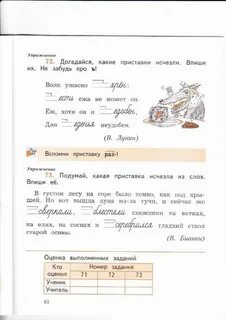 Упражнение
72. Догадайся, какие приставки исчезли. Впиши
их. Не забудь про ъ!
Волк ужасно ярён:
есть ежа не может он.
Ёж, хотя он и едобен,
Для едения неудобен.
(В. Лунин)
Вспомни приставку раз-!
Упражнение
73. Подумай, какая приставка исчезла из слов.
Впиши её.
В густом лесу на горе было темно, как под кры-
шей. Но вот вышла луна из-за тучи, и сейчас же
сверкали, блестели снежинки на ветках,
на елях, на соснах и серебрился гладкий ствол
старой осины.
(В. Бианки)
Оценка выполненных заданий
Кто оценил Номер задания
71 72 73
Ученик
Учитель
61